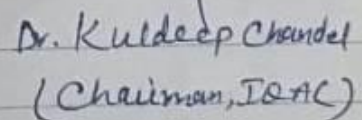 Dr. Kuldeep Chandel
(Chairman, IQAC)